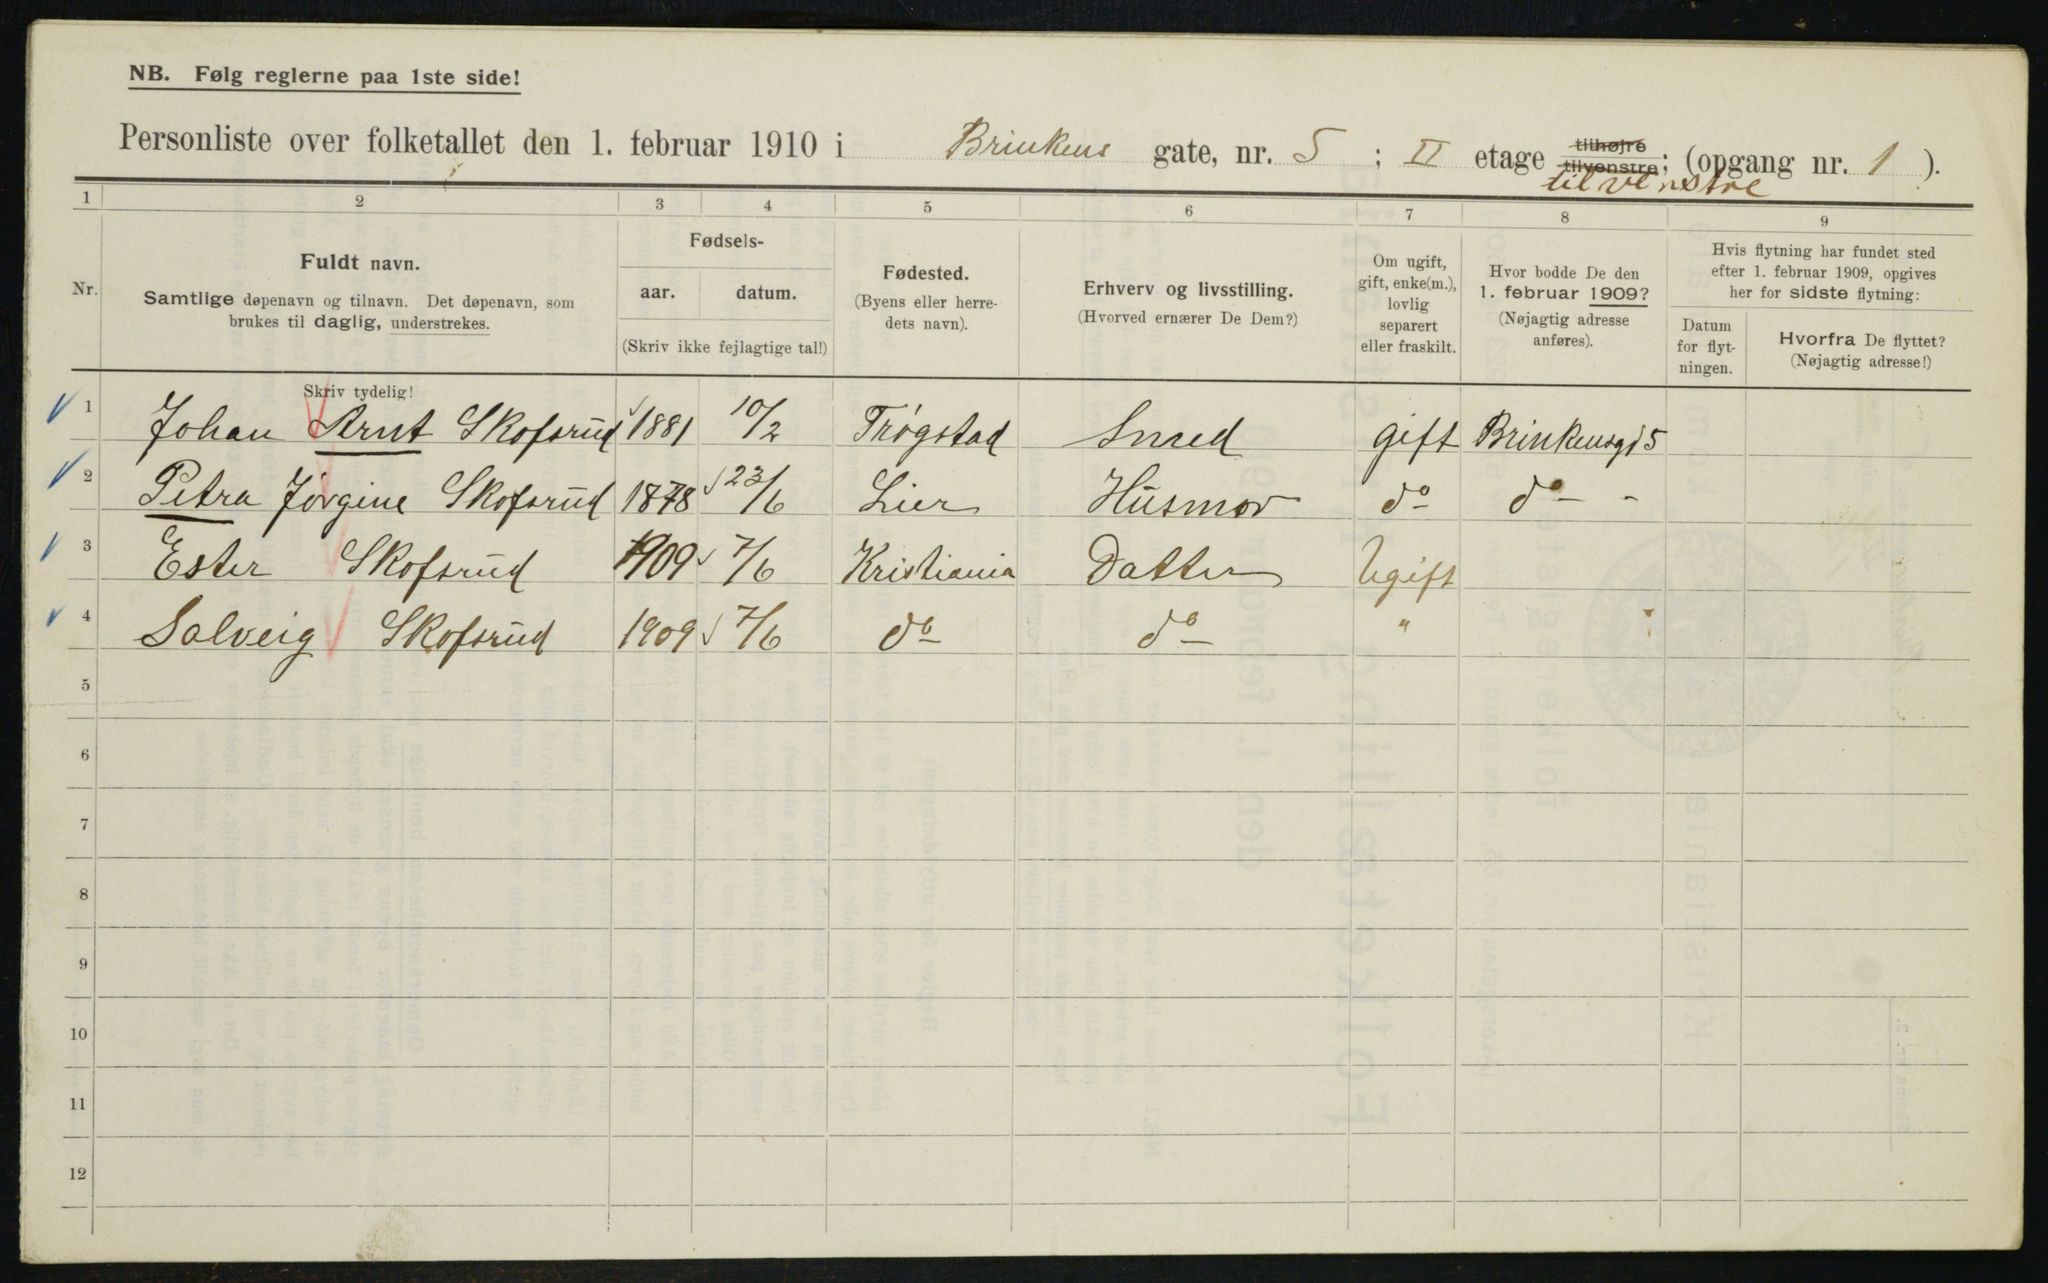 NB. Følg reglerne paa 1ste side!
Personliste over folketallet den 1. februar 1910 i Brinkens gate, nr. 5 ; II etage tilhøjre tilvenstre; (opgang nr. 1 ).
tilvenstre
1 2 3 4 5 6 7 8 9
Nr.
Fuldt navn.
Samtlige døpenavn og tilnavn. Det døpenavn, som
brukes til daglig, understrekes.
Skriv tydelig!
Fødsels-
aar. datum.
(Skriv ikke fejlagtige tal!)
Fødested.
(Byens eller herre-
dets navn).
Erhverv og livsstilling.
(Hvorved ernærer De Dem?)
Om ugift,
gift, enke(m.),
lovlig
separert
eller fraskilt.
Hvor bodde De den
1. februar 1909?
(Nøjagtig adresse
anføres).
Hvis flytning har fundet sted
efter 1. februar 1909, opgives
her for sidste flytning:
Datum
for flyt-
ningen.
Hvorfra De flyttet?
(Nøjagtig adresse!)
1 Johan Arnt Skofsrud 1881 10/2 Trøgstad Smed gift Brinkensgt 5
2 Petra Jørgine Skofsrud 1878 23/6 Lier Husmor do do -
3 Ester Skofsrud 1909 7/6 Kristiania Datter Ugift
4 Solveig Skofsrud 1909 7/6 do do "
5
6
7
8
9
10
11
12